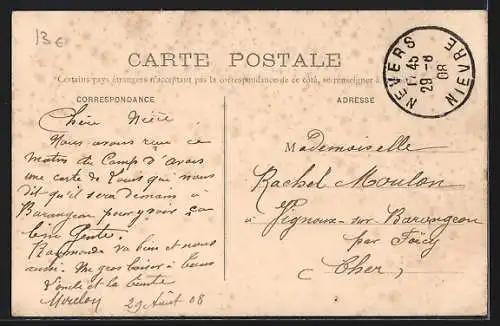 13 €
CARTE POSTALE
Certains pays étrangers n'acceptant pas la correspondance de ce côté, se renseigner à
CORRESPONDANCE
ADRESSE
NEVERS
17 45
29 -8
08
NIEVRE
Chère Nièce
Nous avons reçu ce
matin du Camp d'Avors
une carte de Louis qui nous
dit qu'il sera demain à
Barangeon pour y voir
Raymonde va bien et nous
aussi. Un gros baiser à tous
l'oncle et la tante
29 Août 08
Mademoiselle
Rachel Moulon
à Vignoux-sur-Barangeon
par Foëcy
(Cher)